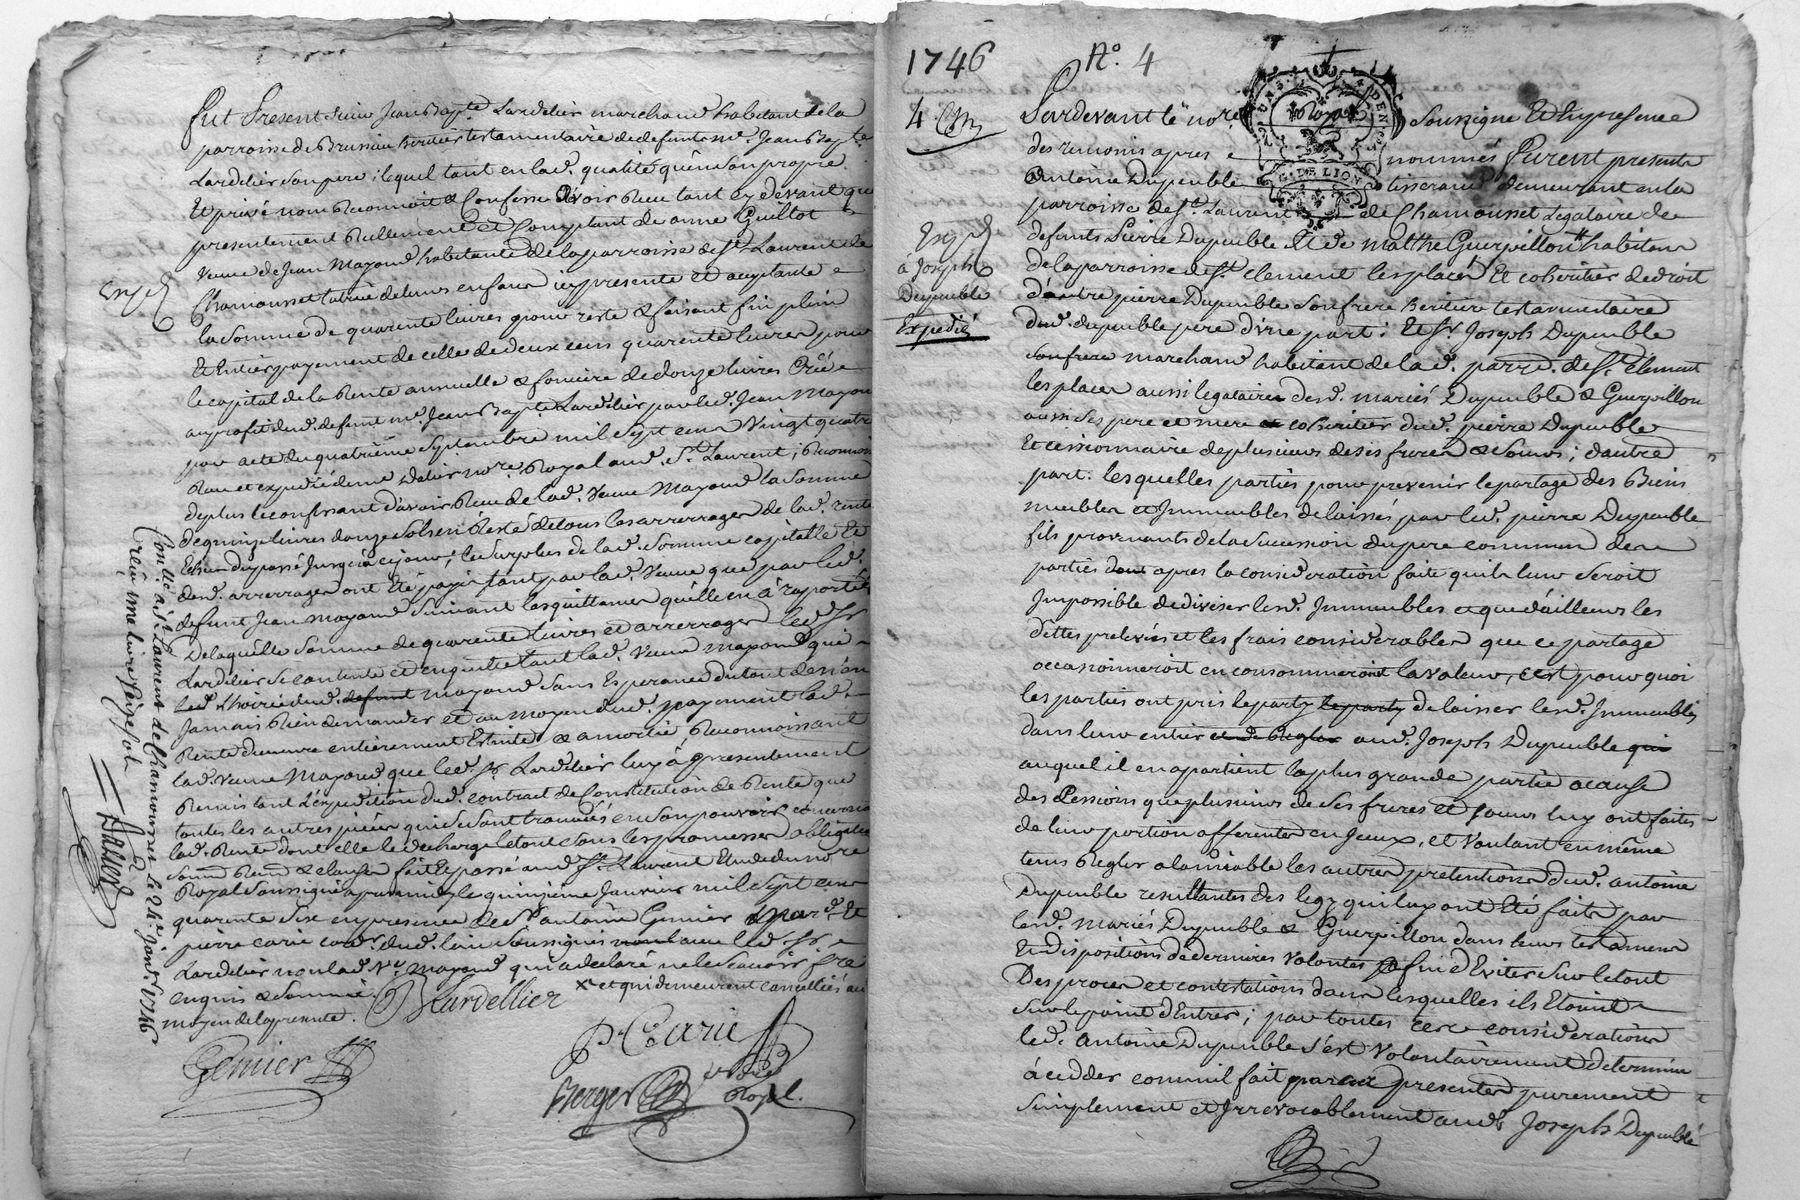 fut Present sieur Jean Bapte. Lardelier marchand habitant de la
parroisse de Brussieu heritier testamentaire de defunt mr. Jean Bapte.
Lardelier son pere, lequel tant en lad. qualité qu'en son propre
Et privé nom Reconnoit & Confesse avoir Receu tant cy devant que
presentement Réellement et Comptant de anne Guillot
veuve de Jean Mayoud habitante de la parroisse de St. Laurent de
Chamousset tutrice de leurs enfans icy presente et aceptante
la Somme de quarente livres pour reste & faisant fin plein
Et Entier payement de celle de deux cens quarente livres pour
le capital de la Rente annuelle & fonciere de douze livres Créée
au profit dud. defunt mr. Jean Bapte. Lardelier par led. Jean Mayoud
par acte du quatrième Septembre mil Sept cens Vingt quatre
Receu et expedié de me Dalier nore. Royal aud. St. Laurent; Reconnois
de plus le confessant d'avoir Receu de lad. veuve Mayoud la Somme
de quinze livres douze sols en Reste de tous les arrerages de lad. rente
Echeus du passé Jusqu'à ce jour, le Surplus de lad. Somme capitalle Et
desd. arrerages ont Eté payés tant par lad. Veuve que par led.
defunt Jean Mayoud Suivant les quittances qu'elle en à raportées
De laquelle Somme de quarente livres et arrerages led. Sr.
Lardelier Se contente et en quitte tant lad. Veuve mayoud que
led. hoirie dud. defunt mayoud sans Esperance du tout de n'en
Jamais Rien demander et au moyen dud. payement lad.
Rente demeure entièrement Eteinte & amortie Reconnoissant
lad. veuve Mayoud que led. Sr. Lardelier luy à presentement
Remis tant l'expedition dud. contract de Constitution de Rente que
toutes les autres pièces qui Se sont trouvées en Son pouvoir concernant
lad. Rente dont elle le decharge le tout Sous les promesses obligations
Soum. Renon. & clauses fait Et passé aud. St. Laurent Etude du nore
Royal Soussigné apres midy le quinzième Janvier mil Sept cens
quarente Six en presence de Sr. antoine Genier & Et
pierre carié cord. dud. lieu Soussignés avec led. Sr.
Lardelier non lad. Ve. Mayoud qui a declaré ne le Scavoir fre
enquis & Sommée. x et qui demeurent cancellées au
moyen de la presente.
JBLardellier
Genier
P. Carié
Berger
nore
Royal.
Enpd
Con llé à St. Laurent de Chamousset le 24e. janv. 1746
Receu une livre seize sols
Dalier
1746 No. 4
4
GN. DE LION
Pardevant le nore Royal Soussigné Et En presence
des temoins apres nommés furent presents
Antoine Dupeuble tisserand demeurant en la
parroisse de St. Laurent de Chamousset Legataire de
defunts Pierre Dupeuble Et de Matthe Guerpillon habitans
de la parroisse de St. Clement les places Et coheritier de droit
d'autre pierre Dupeuble Son frere heritier testamentaire
dud. dupeuble pere d'une part: Et Sr. Joseph Dupeuble
Son frere marchand habitant de lad. parre. de St. Clement
les places aussi legataire desd. mariés Dupeuble & Guerpillon
aussi Ses pere et mere et coheritier dud. pierre Dupeuble
Et cessionnaire de plusieurs de Ses freres & Soeurs; d'autre
part: lesquelles parties pour prevenir le partage des Biens
meubles et Immeubles delaissés par led. pierre Dupeuble
fils provenants de la Sucession du pere commun des
parties dont apres la consideration faite qu'il leur Seroit
Impossible de diviser lesd. Immeubles et que d'ailleurs les
dettes prelevées et les frais considerables que ce partage
occasionneroit en consommeroit la valeur, c'est pourquoi
les parties ont pris le party le party de laisser lesd. Immeubles
dans leur entier et de Regler aud. Joseph Dupeuble qui
auquel il en apartient la plus grande partie a cause
des Cessions que plusieurs de Ses freres et soeurs luy ont faites
de leur portion afferentes en Iceux, et Voulant en même
tems Regler à l'amiable les autres pretentions dud. antoine
Dupeuble resultantes des legs qui luy ont Eté faits par
lesd. mariés Dupeuble & Guerpillon dans leurs testamens
Et dispositions de dernieres volontés afin d'Eviter Sur le tout
Des proces et contestations dans lesquelles ils Etoient
Sur le point d'Entrer; par toutes ces considerations
led. Antoine Dupeuble s'est Volontairement determiné
à ceder comm'il fait par ces presentes purement
Simplement et Irrevocablement aud. Joseph Dupeuble
Enpd
à Joseph
Dupeuble
Expedié